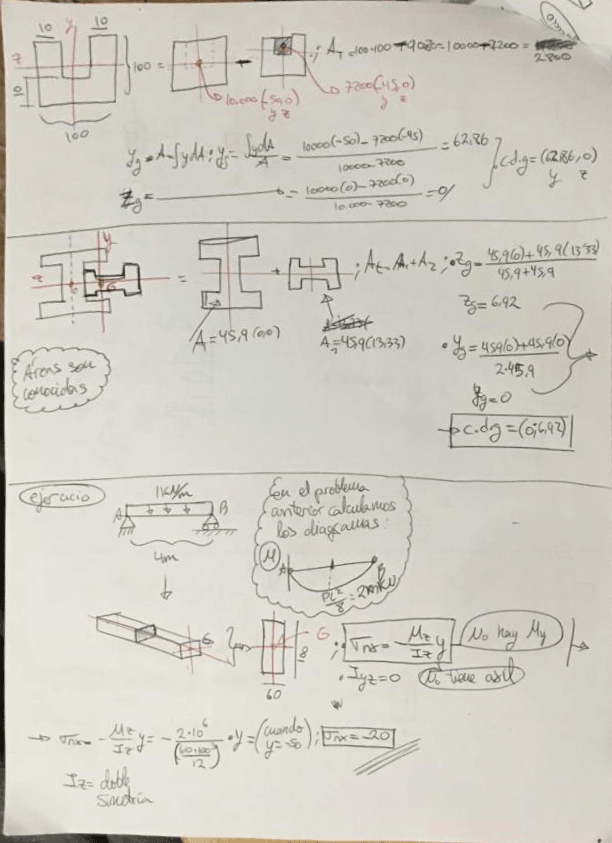 10 y 10
z
100 =
10
100
10.000 (-50,0)
y z
7200 (-45,0)
y z
; A_T = 100·100 - 90·80 = 10000 - 7200 =
2800
y_g = A - ∫ y dA ; y_g = ∫ y dA / A = (10000(-50) - 7200(-45)) / (10000 - 7200) = 62,86
z_g = = (10000(0) - 7200(0)) / (10.000 - 7200) = 0//
c.d.g = (62,86, 0)
y z
y
z
G
= + ; A_t = A_1 + A_2 ; · z_g = (45,9(0) + 45,9(13,33)) / (45,9 + 45,9)
z_g = 6,92
A = 45,9 (0,0)
A_2 = 45,9 (13,33)
· y_g = (45,9(0) + 45,9(0)) / (2·45,9)
y_g = 0
Áreas son
conocidas
→ c.d.g = (0; 6,92)
ejercicio
1 KN/m
A B
4m
En el problema
anterior calculamos
los diagramas:
M
A B
PL²/8 = 2mKN
G
G
8
60
; σ_nx = - M_z / I_z y
No hay My
· I_yz = 0
No tiene axil
→ σ_nx = - M_z / I_z y = - 2·10⁶ / (60·100³ / 12) · y = (cuando y = -50) ; σ_nx = -20
I_z = doble
simetría